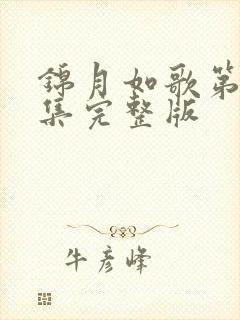 锦月如歌第
集完整版
牛彦峰